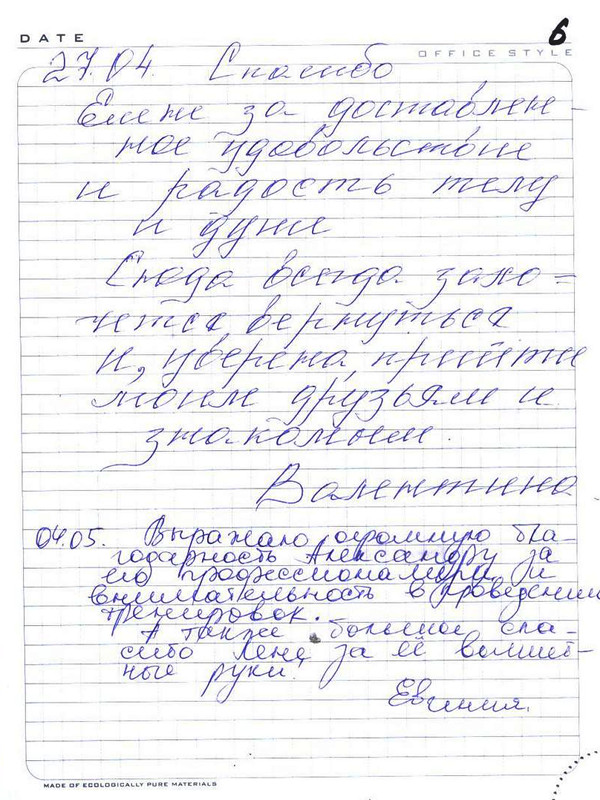 DATE
6
OFFICE STYLE
27.04. Спасибо
Елене за доставлен-
ное удовольствие
и радость телу
и душе
Сюда всегда захо=
чется вернуться
и, уверена, прийти
моим друзьям и
знакомым.
Валентина
04.05. Выражаю огромную бла-
годарность Александру за
его профессионализм и
внимательность в проведении
тренировок.
А также большое спа-
сибо Лене за её волшеб-
ные руки!
Евгения.
MADE OF ECOLOGICALLY PURE MATERIALS